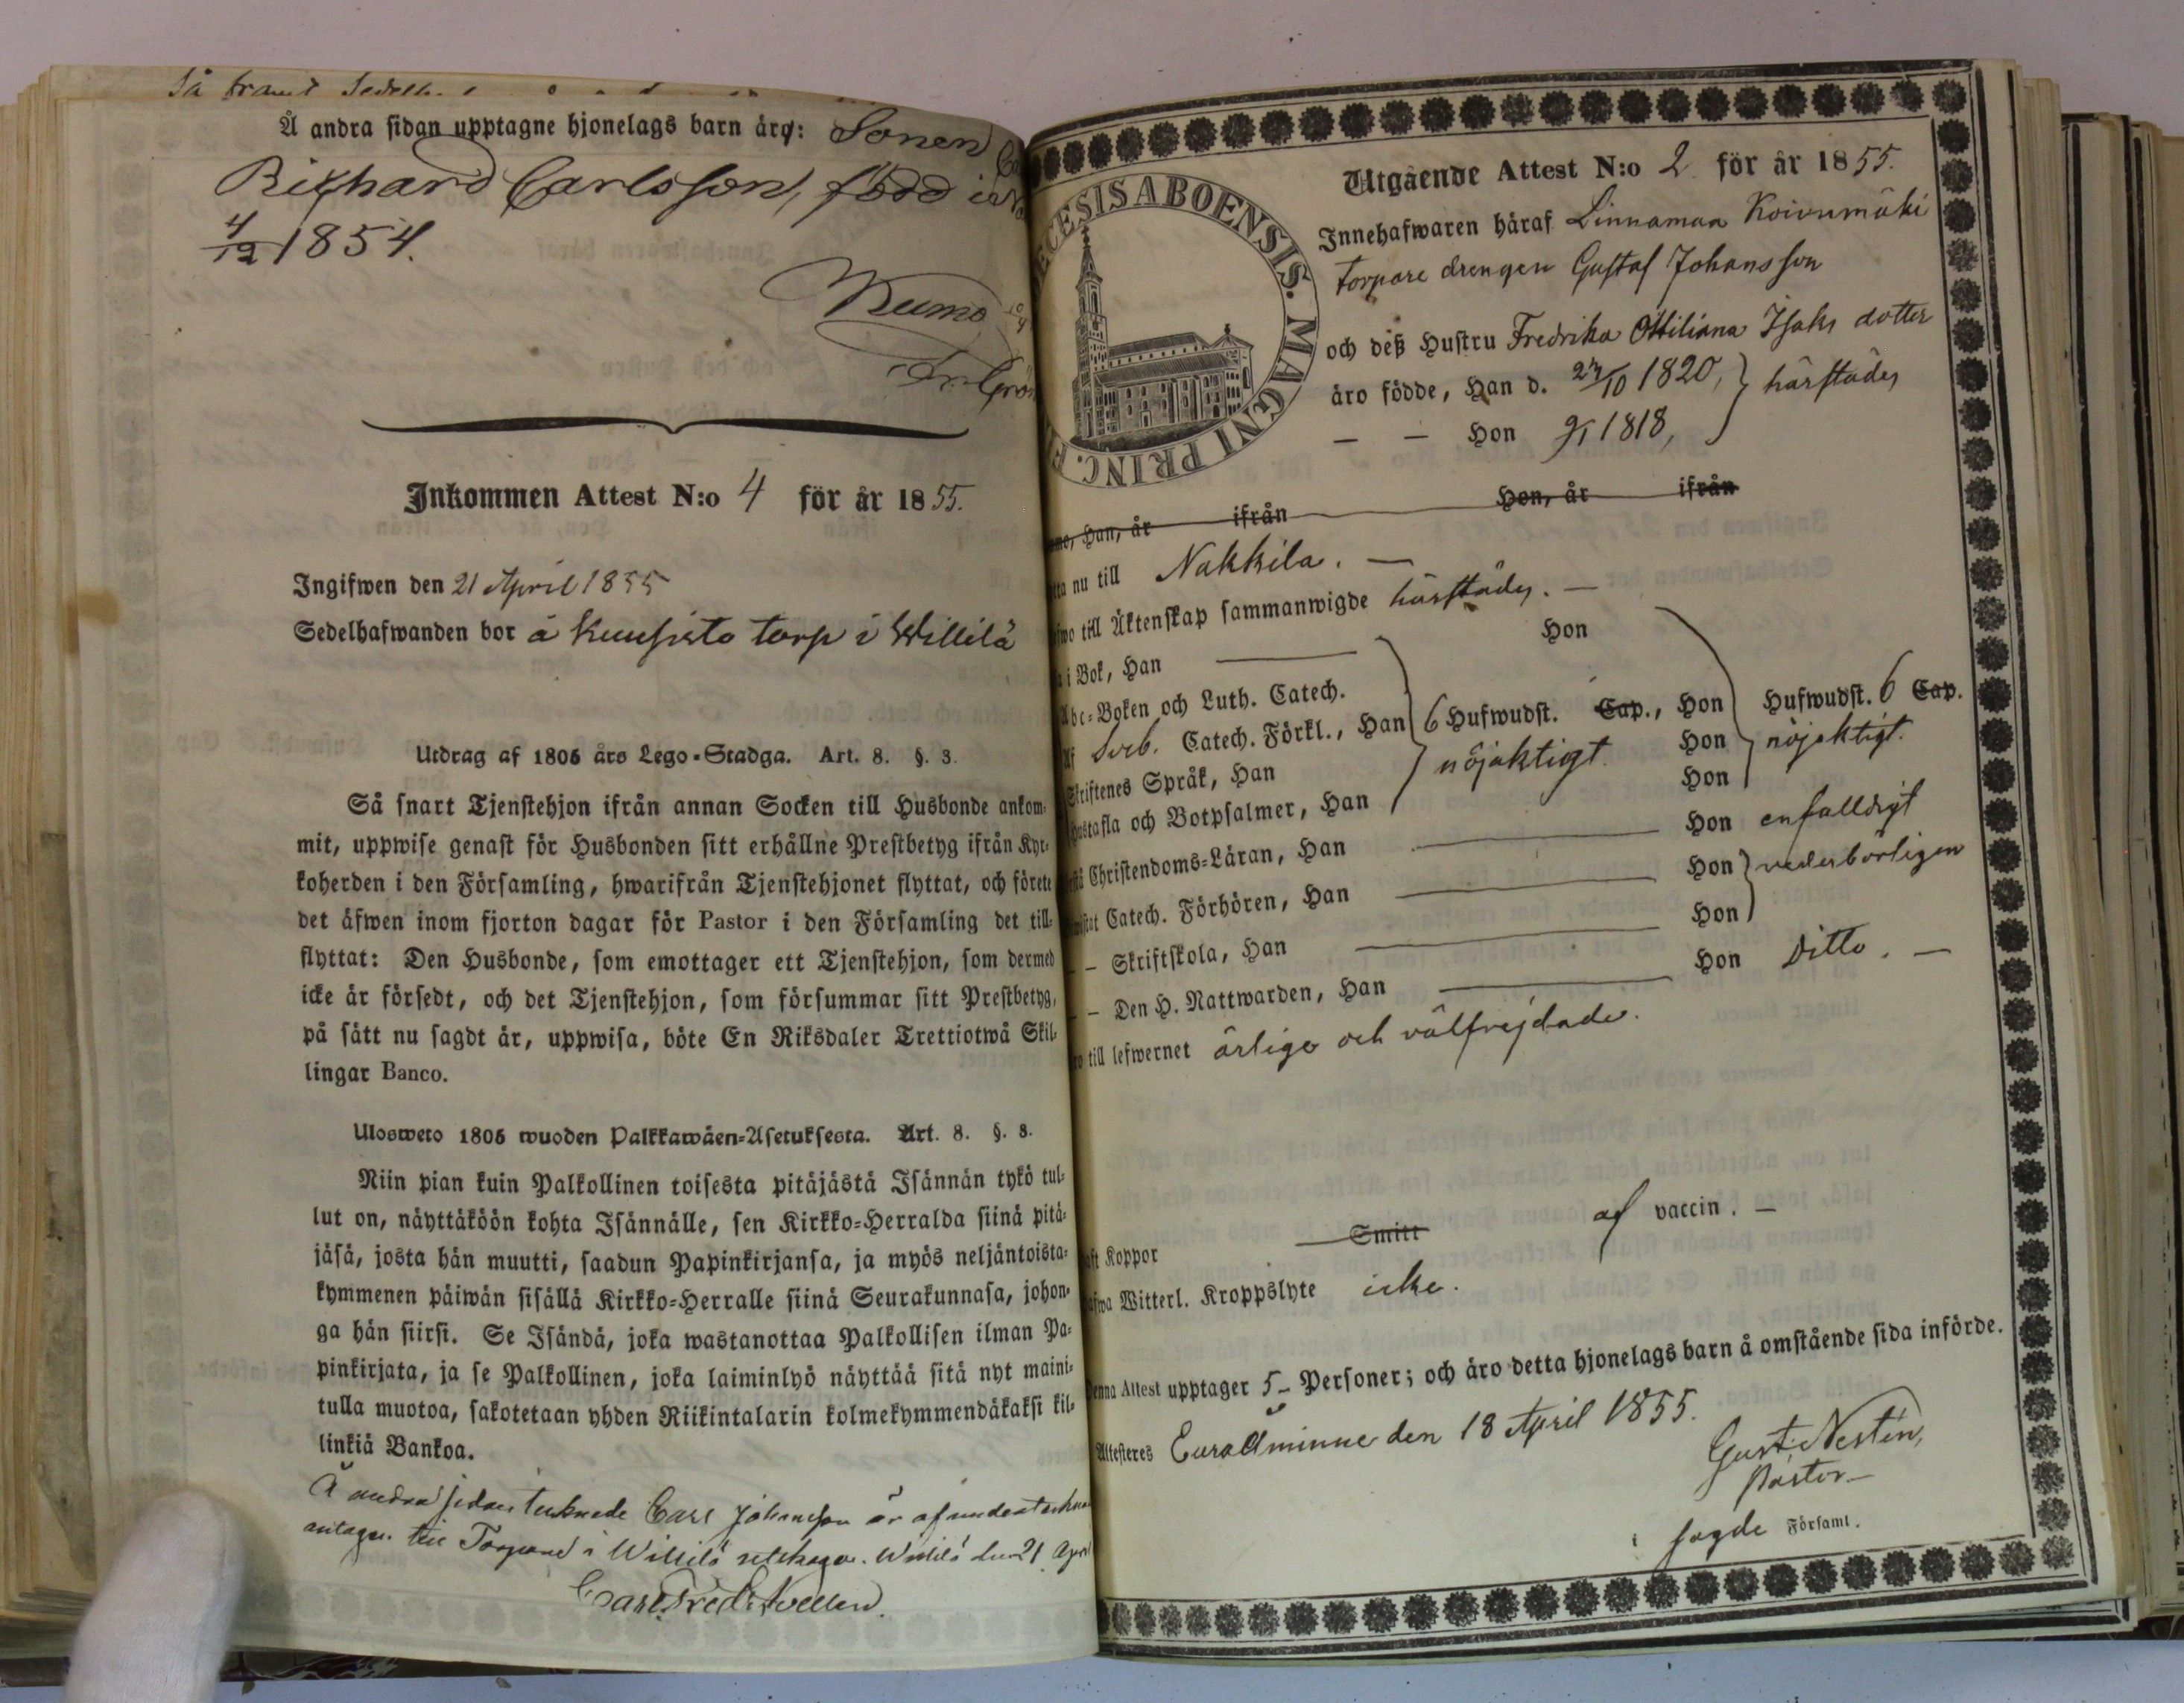 Å andra sidan upptagne hjonelags barn äro: Sonen
Richard Carlsson, född i
4/12 1854.
Kumo
Inkommen Attest N:o 4 för år 1855.
Ingifwen den 21 April 1855
Sedelhafwanden bor å Kuusisto torp i Willilä
Utdrag af 1805 års Lego-Stadga. Art. 8. §. 3.
Så snart Tjenstehjon ifrån annan Socken till Husbonde ankom-
mit, uppwise genast för Husbonden sitt erhållne Prestbetyg ifrån Kyr-
koherden i den Församling, hwarifrån Tjenstehjonet flyttat, och förete
det äfwen inom fjorton dagar för Pastor i den Församling det till-
flyttat: Den Husbonde, som emottager ett Tjenstehjon, som dermed
icke är försedt, och det Tjenstehjon, som försummar sitt Prestbetyg,
på sätt nu sagdt är, uppwisa, böte En Riksdaler Trettiotwå Skil-
lingar Banco.
Ulosweto 1805 wuoden Palkkawäen-Asetuksesta. Art. 8. §. 3.
Niin pian kuin Palkollinen toisesta pitäjästä Isännän tykö tul-
lut on, näyttäköön kohta Isännälle, sen Kirkko-Herralda siinä pitä-
jäsä, josta hän muutti, saadun Papinkirjansa, ja myös neljäntoista-
kymmenen päiwän sisällä Kirkko-Herralle siinä Seurakunnasa, johon-
ga hän siirsi. Se Isändä, joka wastanottaa Palkollisen ilman Pa-
pinkirjata, ja se Palkollinen, joka laiminlyö näyttää sitä nyt maini-
tulla muotoa, sakotetaan yhden Riikintalarin kolmekymmendäkaksi kil-
linkiä Bankoa.
Å andra sidan tecknade Carl Johansson är af
antagen till Torpare i Willilä Willilä den 21 April
Carl Fred
ECESIS ABOENSIS. MAGNI PRINC. F
Utgående Attest N:o 2 för år 1855.
Innehafwaren häraf Linnamaa Koivumäki
torpare drengen Gustaf Johansson
och deß Hustru Fredrika Ottiliana Isaks dotter
äro födde, Han d. 24/10 1820, härstädes
— — Hon 9/1 1818,
Han, år ifrån Hon, år ifrån
nu till Nakkila. —
till Äktenskap sammanwigde härstädes. —
i Bok, Han Hon
Abc-Boken och Luth. Catech.
Af Sveb. Catech. Förkl., Han 6 Hufwudst. Cap., Hon Hufwudst. 6 Cap.
Skriftenes Språk, Han nöjaktigt. Hon nöjaktigt.
Hustafla och Botpsalmer, Han Hon
Christendoms-Läran, Han Hon enfalldigt
Catech. Förhören, Han Hon vederbörligen
— Skriftskola, Han Hon
— Den H. Nattwarden, Han Hon Ditto. —
till lefwernet ärlige och välfrejdade.
Koppor Smitt af vaccin. —
Witterl. Kroppslyte icke.
Denna Attest upptager 5 Personer; och äro detta hjonelags barn å omstående sida införde.
Attesteres Euraåminne den 18 April 1855.
Gust. Nestén,
Pastor
i sagde Församl.